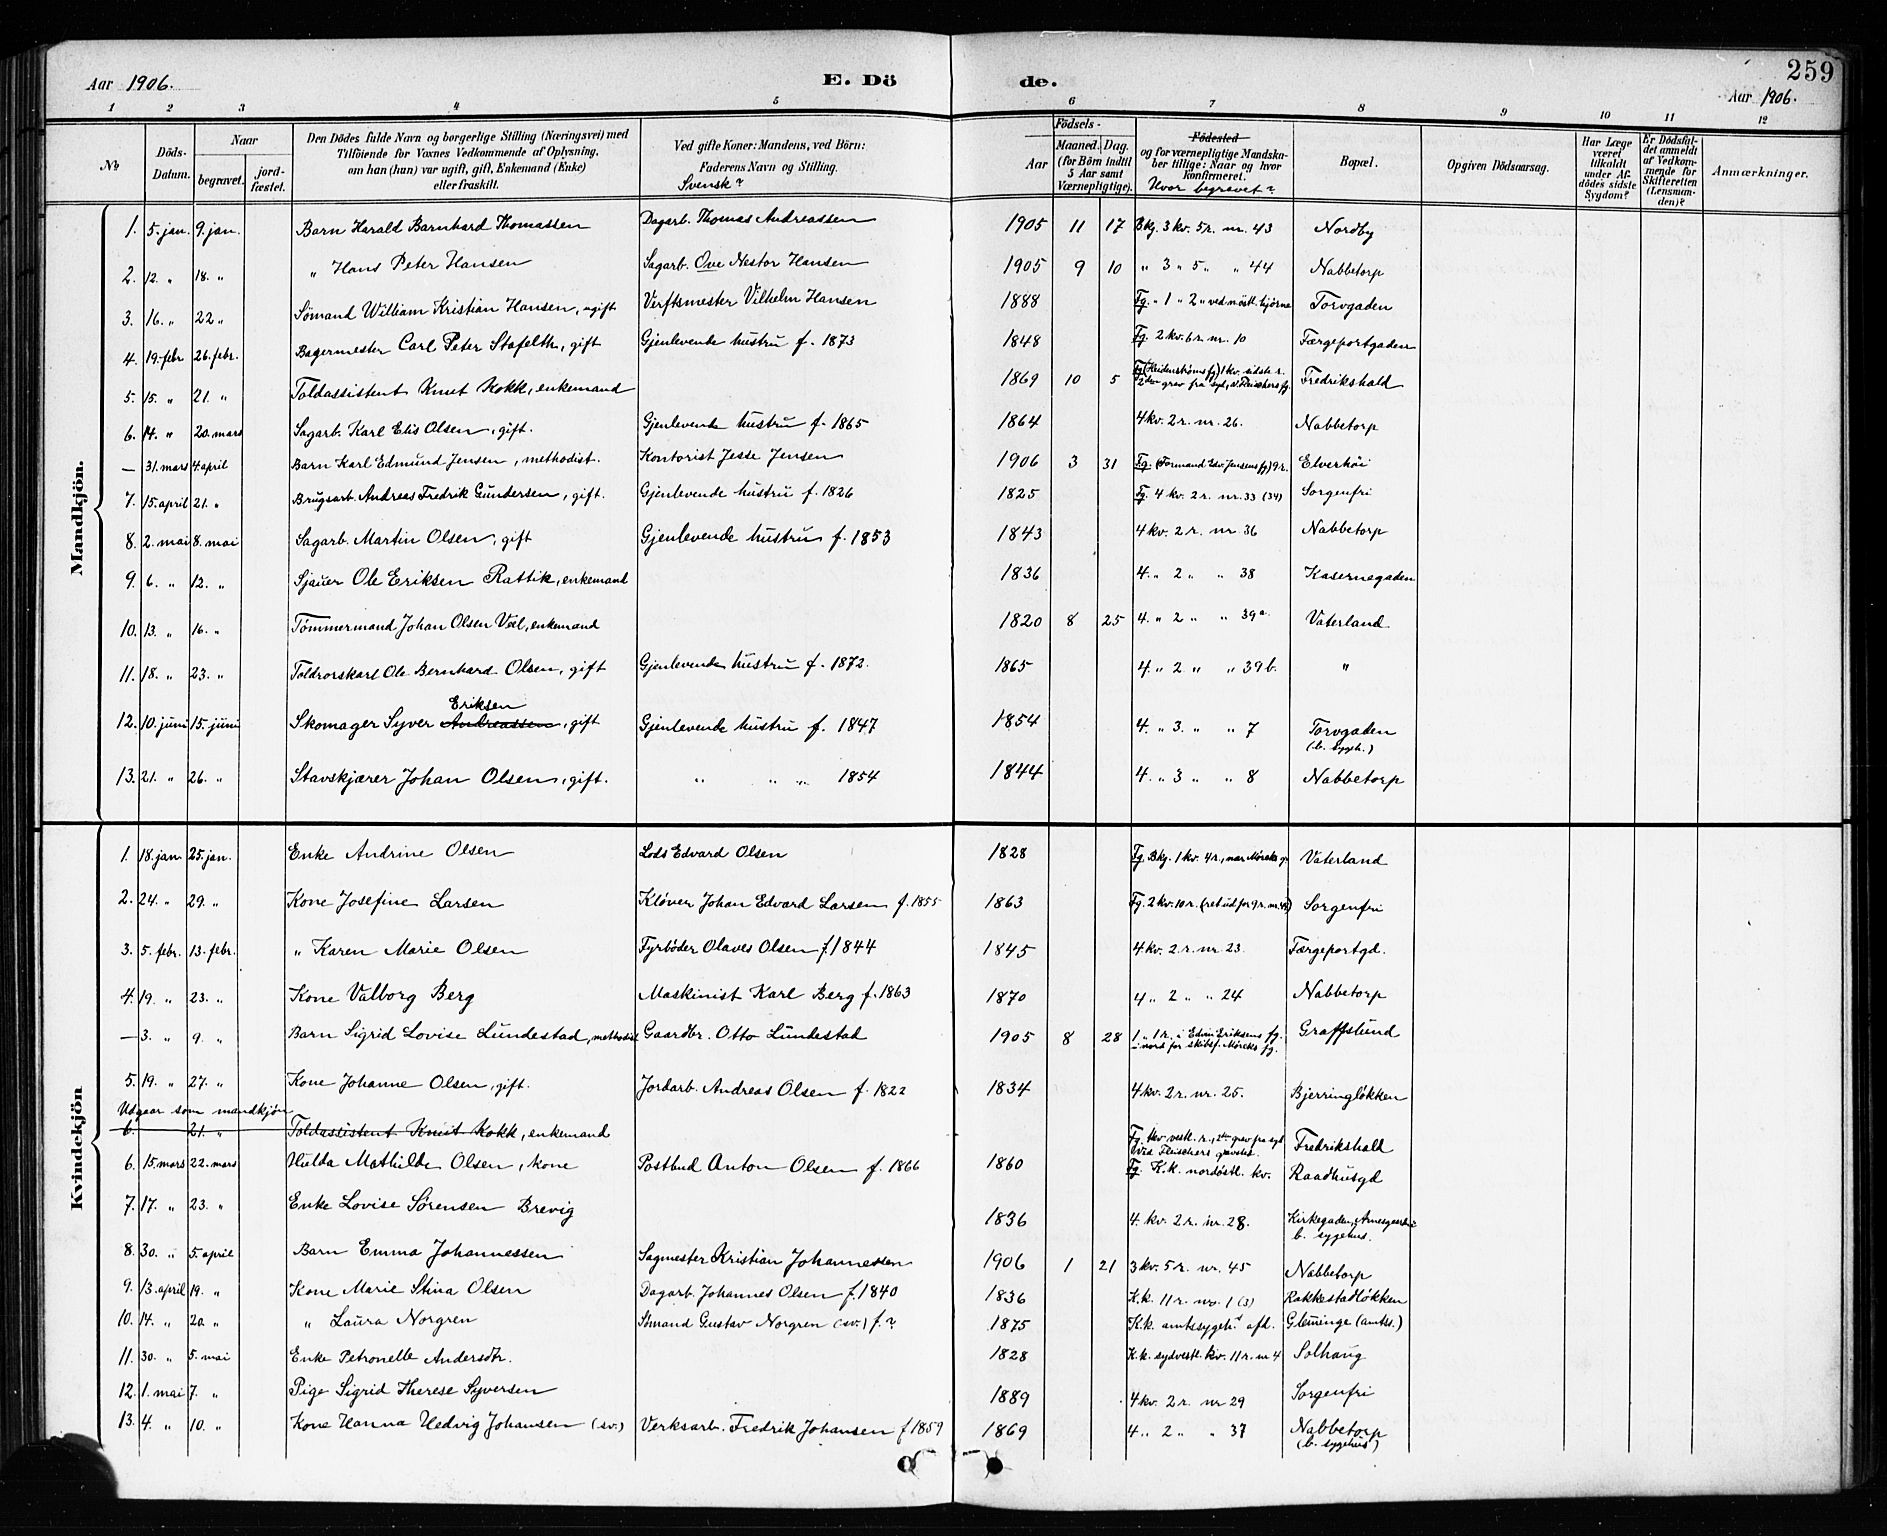 Aar 1906. E. Dö de. 259
Aar 1906.
1 2 3 4 5 6 7 8 9 10 11 12
No Döds-Datum. Naar begravet. jord-fæstet. Den Dödes fulde Navn og borgerlige Stilling (Næringsvei) med Tilföiende for Voxnes Vedkommende af Oplysning, om han (hun) var ugift, gift, Enkemand (Enke) eller fraskilt. Ved gifte Koner: Mandens, ved Börn: Faderens Navn og Stilling. Svensk? Födsels- Aar Maaned. Dag. (for Börn indtil 5 Aar samt Værnepligtige). Födested og for værnepligtige Mandskaber tillige: Naar og hvor konfirmeret. Hvor begravet? Bopæl. Opgiven Dödsaarsag. Har Læge været tilkaldt under Afdödes sidste Sygdom? Er Dödsfaldet anmeldt af Vedkommende for Skifteretten (Lensmanden)? Anmærkninger.
Mandkjön.
1. 5. jan. 9. jan. Barn Harald Barnhard Thomassen Dagarb. Thomas Andreassen 1905 11 17 Bkg. 3 kv. 5 r. nr. 43 Nordby
2. 12. " 18. " " Hans Peter Hansen Sagarb. Ove Nestor Hansen 1905 9 10 " 3 " 5 " " 44 Nabbetorp
3. 16. " 22 " Sömand William Kristian Hansen, ugift Verftsmester Vilhelm Hansen 1888 Fg. " 1 " 2 " ved nöstl. hjörne Torvgaden
4. 19. febr 26. febr. Bagermester Carl Peter Stafelth, gift Gjenlevende hustru f. 1873 1848 Fg. 2 kv. 6 r. nr. 10 Færgeportgaden
5. 15. " 21. " Toldassistent Knut Kokk, enkemand 1869 10 5 Fg. 1 kv. sidste r. 2den grav fra syd, v. Fleischers fg. Fredrikshald
6. 14. " 20. mars Sagarb. Karl Elis Olsen, gift. Gjenlevende hustru f. 1865 1864 4 kv. 2 r. nr. 26. Nabbetorp
— 31. mars 4. april Barn Karl Edmund Jensen, methodist. Kontorist Jesse Jensen 1906 3 31 Fg. (Formand Edv. Jensens fg) 9 r. Elverhöi
7. 15. april 21. " Brugsarb. Andreas Fredrik Gundersen, gift. Gjenlevende hustru f. 1826 1825 Fg. 4 kv. 2 r. nr. 33 (34) Sorgenfri
8. 2. mai 8. mai Sagarb. Martin Olsen, gift Gjenlevende hustru f. 1853 1843 4 kv. 2 r. nr 36 Nabbetorp
9. 6. " 12. " Sjauer Ole Eriksen Rattik, enkemand 1836 4. " 2 " " 38 Kasernegaden
10. 13. " 16. " Tömmermand Johan Olsen Veel, enkemand 1820 8 25 4. " 2 " " 39 a. Vaterland
11. 18. " 23. " Toldrorskarl Ole Bernhard Olsen, gift Gjenlevende hustru f. 1872. 1865 4. " 2 " " 39 b. "
12. 10. juni 15. juni Skomager Syver Andreassen Eriksen, gift Gjenlevende hustru f. 1847 1854 4. " 3. " " 7 Torvgaden (b. sygeh.)
13. 21. " 26. " Stavskjærer Johan Olsen, gift. " " " 1854 1844 4. " 3 " " 8 Nabbetorp
Kvindekjön
1. 18. jan. 25. jan. Enke Andrine Olsen Lods Edvard Olsen 1828 Fg. Bkg. 1 kv. 4 r., nær Vaterland
2. 24. " 29. " Kone Josefine Larsen Klöver Johan Edvard Larsen f. 1855 1863 Fg. 2 kv. 10 r. (ret ud for 9 r. nr. 42) Sorgenfri
3. 5. febr. 13. febr. " Karen Marie Olsen Fyrböder Olaves Olsen f. 1844 1845 4 kv. 2 r. nr 23. Færgeportgd.
4. 19. " 23. " Kone Valborg Berg Maskinist Karl Berg f. 1863 1870 4 " 2 " " 24 Nabbetorp
— 3. " 9. " Barn Sigrid Lovise Lundestad, methodist Gaardbr. Otto Lundestad 1905 8 28 1 " 1 r. i Edvin Eriksens fg. nord for skibsf. fg. Graffslund
5. 19. " 27. " Kone Johanne Olsen, gift. Jordarb. Andreas Olsen f. 1822 1834 4 kv. 2 r. nr. 25. Bjerringlökken
Udgaar som mandkjön
6. 21. " Toldassistent Knut Kokk, enkemand Fg. 1 kv. vestl. r., 2den grav fra syd ved Fleischers gravsted. Fredrikshald
6. 15. mars 22. mars Hulda Mathilde Olsen, kone Postbud Anton Olsen f. 1866 1860 Fg. K.k. nordöstl. kv. Raadhusgd
7. 17. " 23. " Enke Lovise Sörensen Brevig 1836 4. kv. 2 r. nr. 28. Kirkegaden, b. sygehus.
8. 30. " 5. april Barn Emma Johannessen Sagmester Kristian Johannessen 1906 1 21 3 kv. 5 r. nr. 45 Nabbetorp
9. 13. april 19. " Kone Marie Stina Olsen Dagarb. Johannes Olsen f. 1840 1836 K.k. 11 r. no. 1 (3) Rakkestadlökken
10. 14. " 20. " " Laura Norgren Gustav Norgren (sv.) f. ? 1875 K.k. amtssygeh. afd. Glemminge (amtss.)
11. 30. " 5. mai Enke Petronelle Andersdtr. 1828 K.k. sydvestl. kv. 11 r. nr 4 Solhaug
12. 1. mai 7. " Pige Sigrid Therese Syversen 1889 4 kv. 2 r. nr 29 Sorgenfri
13. 4. " 10. " Kone Hanna Hedvig Johansen (sv.) Verksarb. Fredrik Johansen f 1859 1869 4 " 2 " " 37 Nabbetorp (b. sygehus)